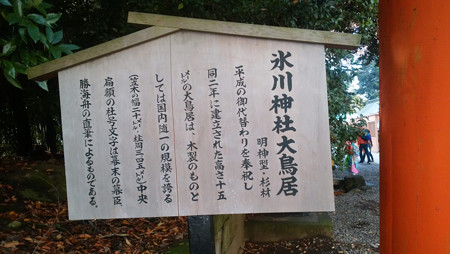 氷川神社大鳥居
明神型・杉材
平成の御代替わりを奉祝し
同二年に建立された高さ十五
㍍の大鳥居は、木製のものと
しては国内随一の規模を誇る
中央
扁額の社号文字は幕末の幕臣
勝海舟の直筆によるものである。